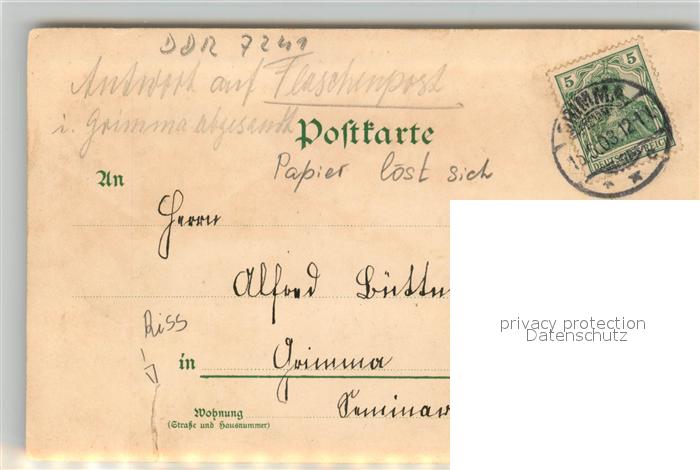 DDR 7241
Antwort auf Flaschenpost
i. Grimma abgesandt
Postkarte
5
GRIMMA
DEUTSCHES REICH
Papier löst sich
An
Herrn
Alfred Büttn
Riss
in Grimma
Wohnung
(Straße und Hausnummer)
Seminar
privacy protection
Datenschutz